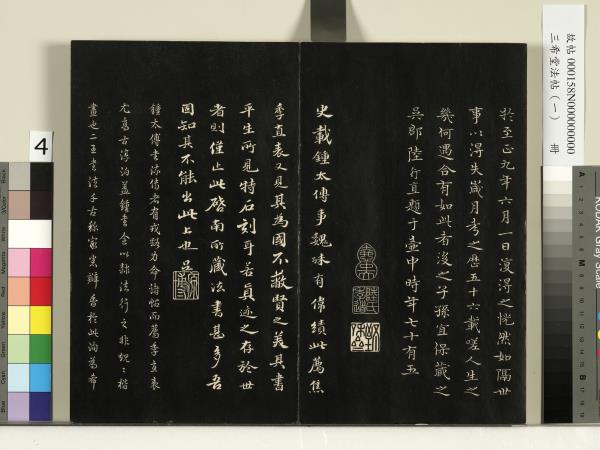 於至正九年六月一日復得之恍然如隔世
事以得失歲月考之歷五十六載嗟人生之
幾何遇合有如此者後之子孫宜保藏之
吳郡陸行直題于壺中時年七十有五
史載鍾太傅事魏殊有偉績此薦焦
季直表又見其為國不蔽賢之美其書
平生所見特石刻耳若真迹之存於世
者則僅止此啓南所藏法書甚多吾
固知其不能出此上也
鍾太傅書流傳者有戎路力命諸帖而薦季直表
尤高古淳泊蓋鍾書全以隸法行之非規規楷
畫也二王書法千古
故帖 000158N000000000
三希堂法帖(一) 冊
4
KODAK
A
B
Black
White
Magenta
Red
Yellow
Green
Cyan
Blue